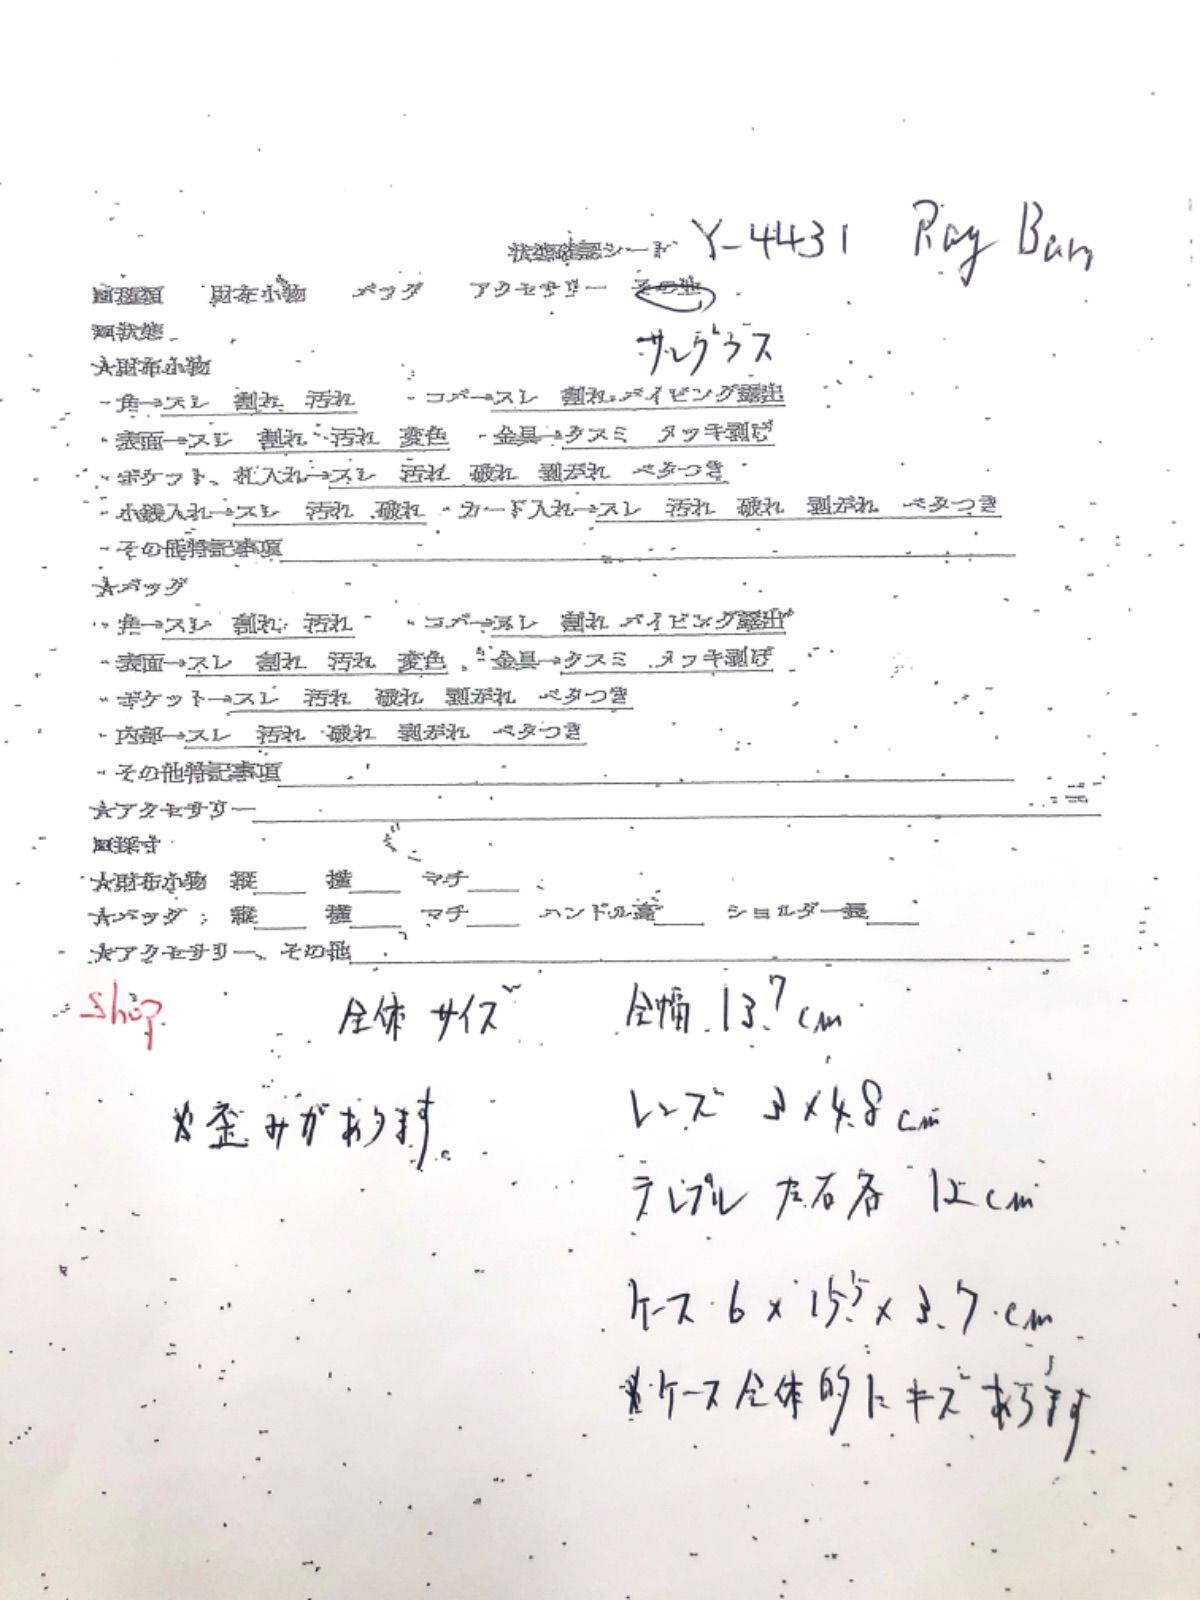 状態確認シート Y-4431 Ray Ban
■種類 財布小物 バッグ アクセサリー その他
サングラス
■状態
★財布小物
・角→スレ 割れ 汚れ ・コバ→スレ 割れ パイピング露出
・表面→スレ 割れ 汚れ 変色 ・金具→クスミ メッキ剥げ
・ポケット、札入れ→スレ 汚れ 破れ 剥がれ ベタつき
・小銭入れ→スレ 汚れ 破れ ・カード入れ→スレ 汚れ 破れ 剥がれ ベタつき
・その他特記事項
★バッグ
・角→スレ 割れ 汚れ ・コバ→スレ 割れ パイピング露出
・表面→スレ 割れ 汚れ 変色 ・金具→クスミ メッキ剥げ
・ポケット→スレ 汚れ 破れ 剥がれ ベタつき
・内部→スレ 汚れ 破れ 剥がれ ベタつき
・その他特記事項
★アクセサリー
■採寸
★財布小物 縦 横 マチ
★バッグ 縦 横 マチ ハンドル高 ショルダー長
★アクセサリー、その他
shop 全体サイズ 全幅 13.7cm
レンズ 3×4.8cm
※歪みがあります。
テンプル 左右各 12cm
ケース 6×15.5×3.7cm
※ケース全体的にキズあります